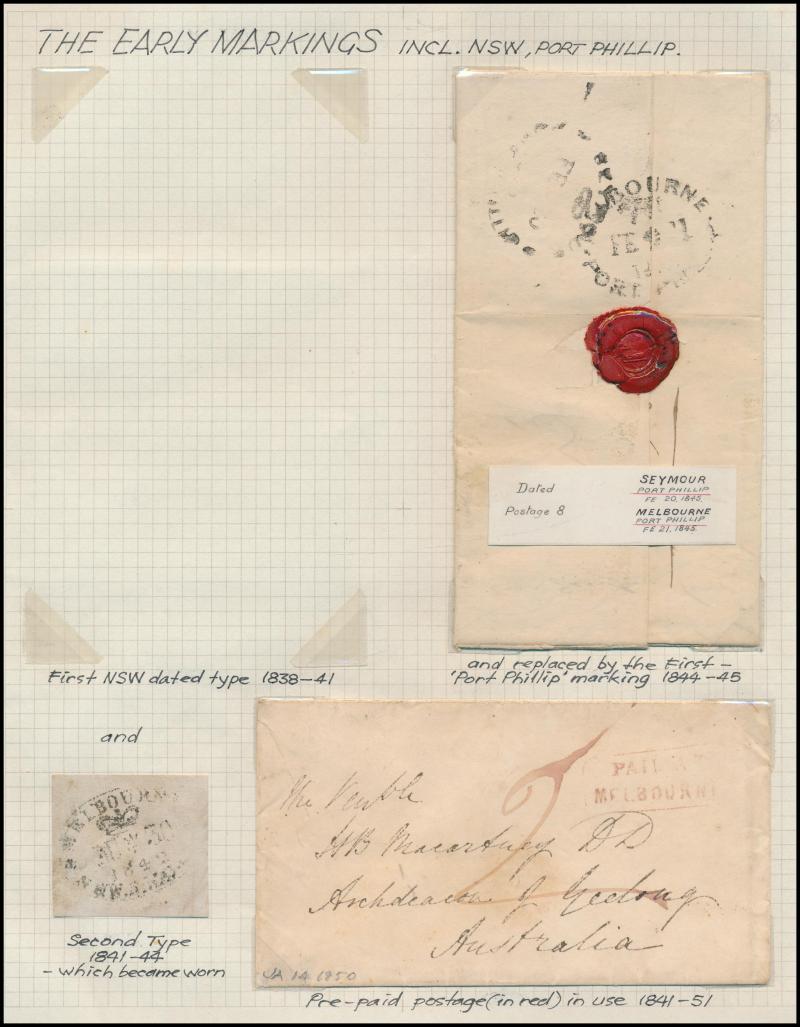 THE EARLY MARKINGS INCL. NSW, PORT PHILLIP.
MELBOURNE
FE 21
PORT PHIL
Dated
Postage 8
SEYMOUR
PORT PHILLIP
FE 20. 1845.
MELBOURNE
PORT PHILLIP
FE 21. 1845
First NSW dated type 1838-41
and replaced by the First -
'Port Phillip' marking 1844-45
and
MELBOURNE
184
Second Type
1841-44
- which became worn
PAID AT
MELBOURNE
2
The Venble
HB Macartney DD
Archdeacon of Geelong
Australia
14 1850
Pre-paid postage (in red) in use 1841-51